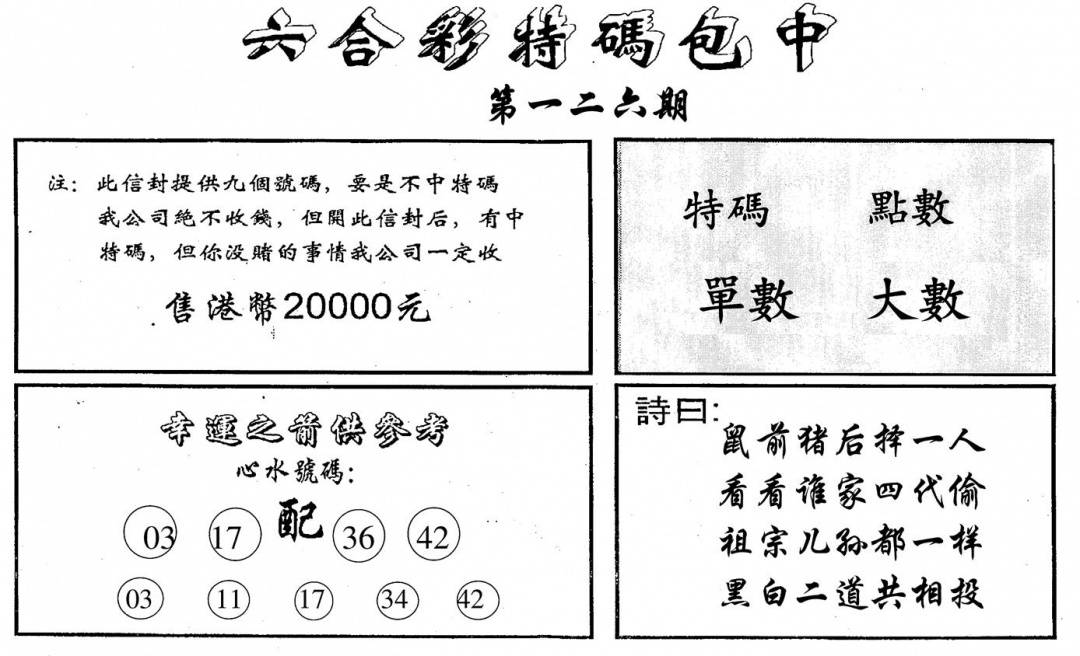 六合彩特碼包中
第一二六期
注：此信封提供九個號碼，要是不中特碼
我公司絕不收錢，但開此信封后，有中
特碼，但你没賭的事情我公司一定收
售港幣20000元
特碼 點數
單數 大數
幸運之箭供參考
心水號碼：
03 17 配 36 42
03 11 17 34 42
詩曰：
鼠前猪后择一人
看看谁家四代偷
祖宗儿孙都一样
黑白二道共相投